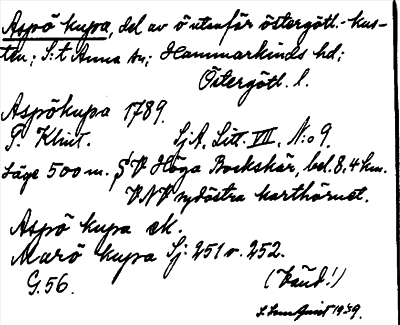 Aspö kupa, del av ö utanför östergötl.-kus-
ten; S:t Anna sn; Hammarkinds hd;
Östergötl. l.
Aspökupa 1789.
P. Klint. SjA. Litt. VII. N:o 9.
Läge 500 m. SV Höga Bockskär, bel. 8,4 km.
VNV sydöstra karthörnet.
Aspö kupa ek.
Marö kupa Sj. 251 v. 252.
G. 56. (Vänd!)
1939.